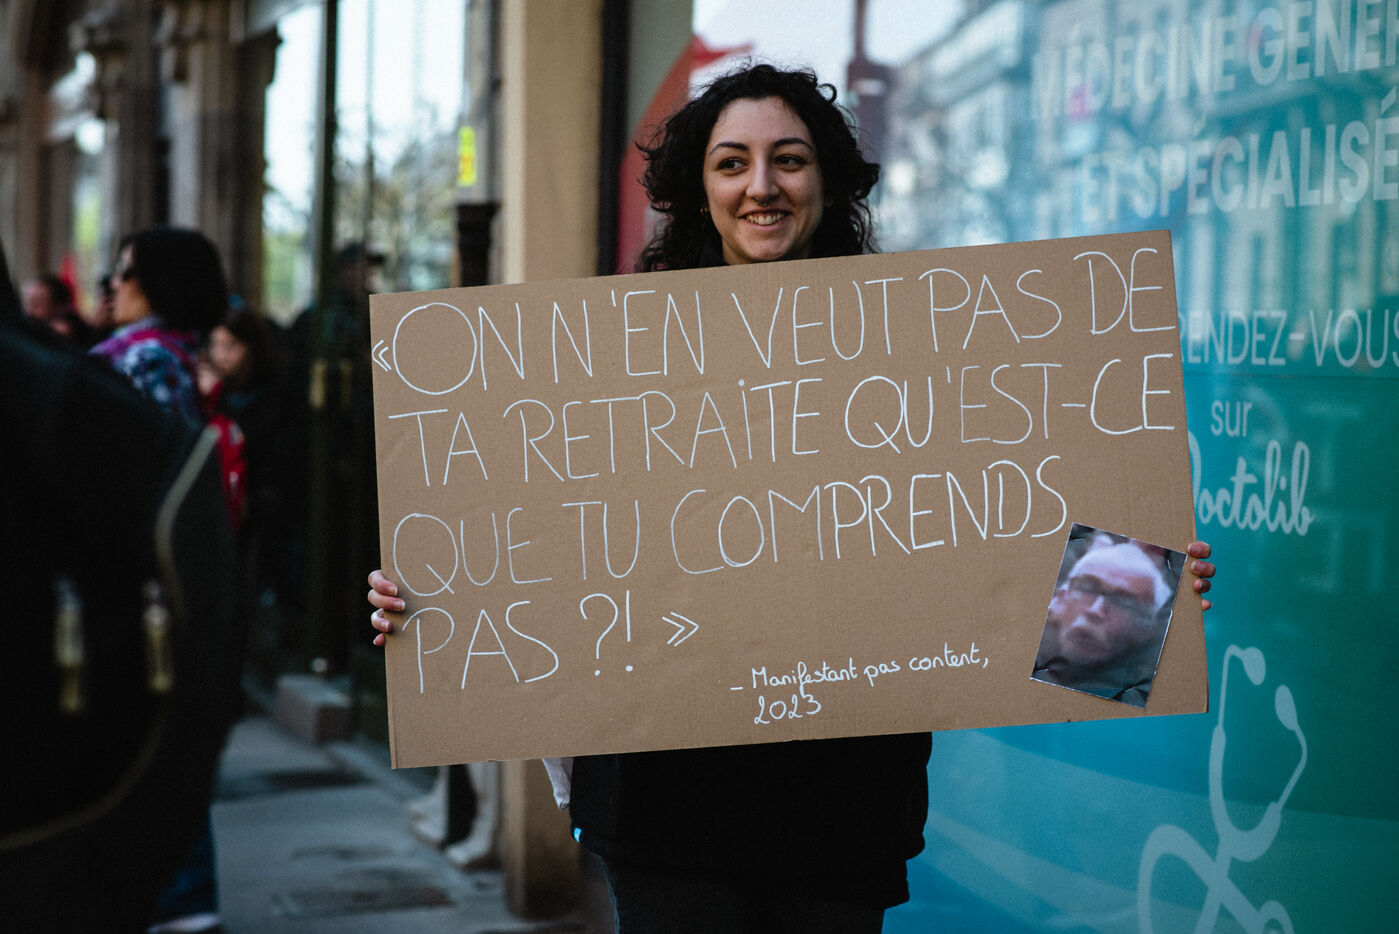 «ON N'EN VEUT PAS DE
TA RETRAiTE QU'EST-CE
QUE TU COMPRENDS
PAS ?! »
- Manifestant pas content,
2023
MÉDECINE GÉNÉ
ET SPÉCIALISÉ
RENDEZ-VOUS
sur
Doctolib